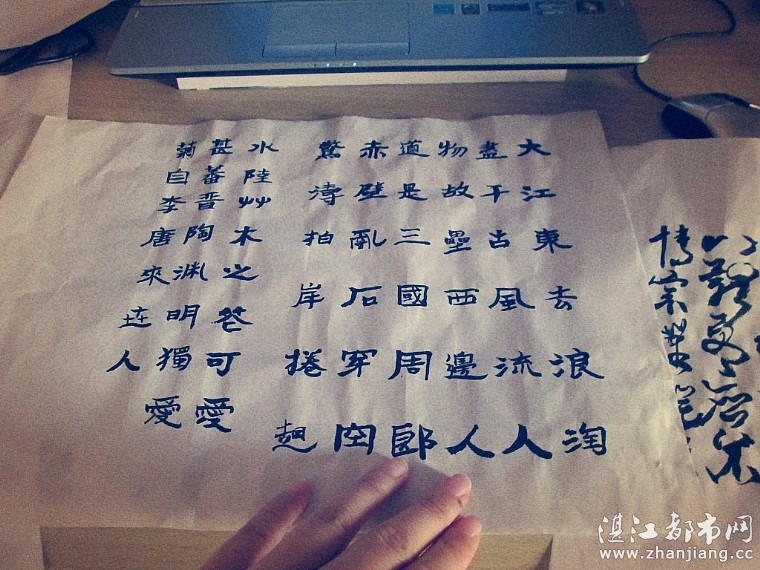 大江東去浪淘
盡千古風流人
物故壘西邊人
道是三國周郎
赤壁亂石穿空
驚濤拍岸捲起
水陸艸木之花可愛
甚蕃晋陶渊明獨愛
菊自李唐來世人
湛江都市网
www.zhanjiang.cc